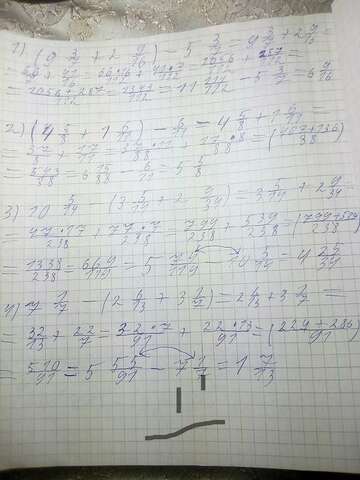 1) (9 3/7 + 2 9/16) - 5 3/7 = 9 3/7 + 2 9/16 =
= 66/7 + 41/16 = 66·16 + 41·7 / 112 = 1056 + 287 / 112 =
= 1056+287/112 = 1343/112 = 11 111/112 - 5 3/7 = 6 9/16
2) (4 5/8 + 1 6/11) - 6/11 = 4 5/8 + 1 6/11 =
= 37/8 + 17/11 = 37·11/88 + 17·8/88 = (407+136)/88
= 543/88 = 6 15/88 - 6/11 = 5 5/8
3) 10 5/14 - (3 5/14 + 2 9/34) = 3 5/14 + 2 9/34
= 47·17/238 + 77·7/238 = 799/238 + 539/238 = (799+539)/238
= 1338/238 = 669/119 = 5 74/119 - 10 5/14 = 4 25/34
4) 7 1/7 - (2 6/13 + 3 1/7) = 2 6/13 + 3 1/7 =
= 32/13 + 22/7 = 32·7/91 + 22·13/91 = (224+286)/91
= 510/91 = 5 55/91 - 7 1/7 = 1 7/13